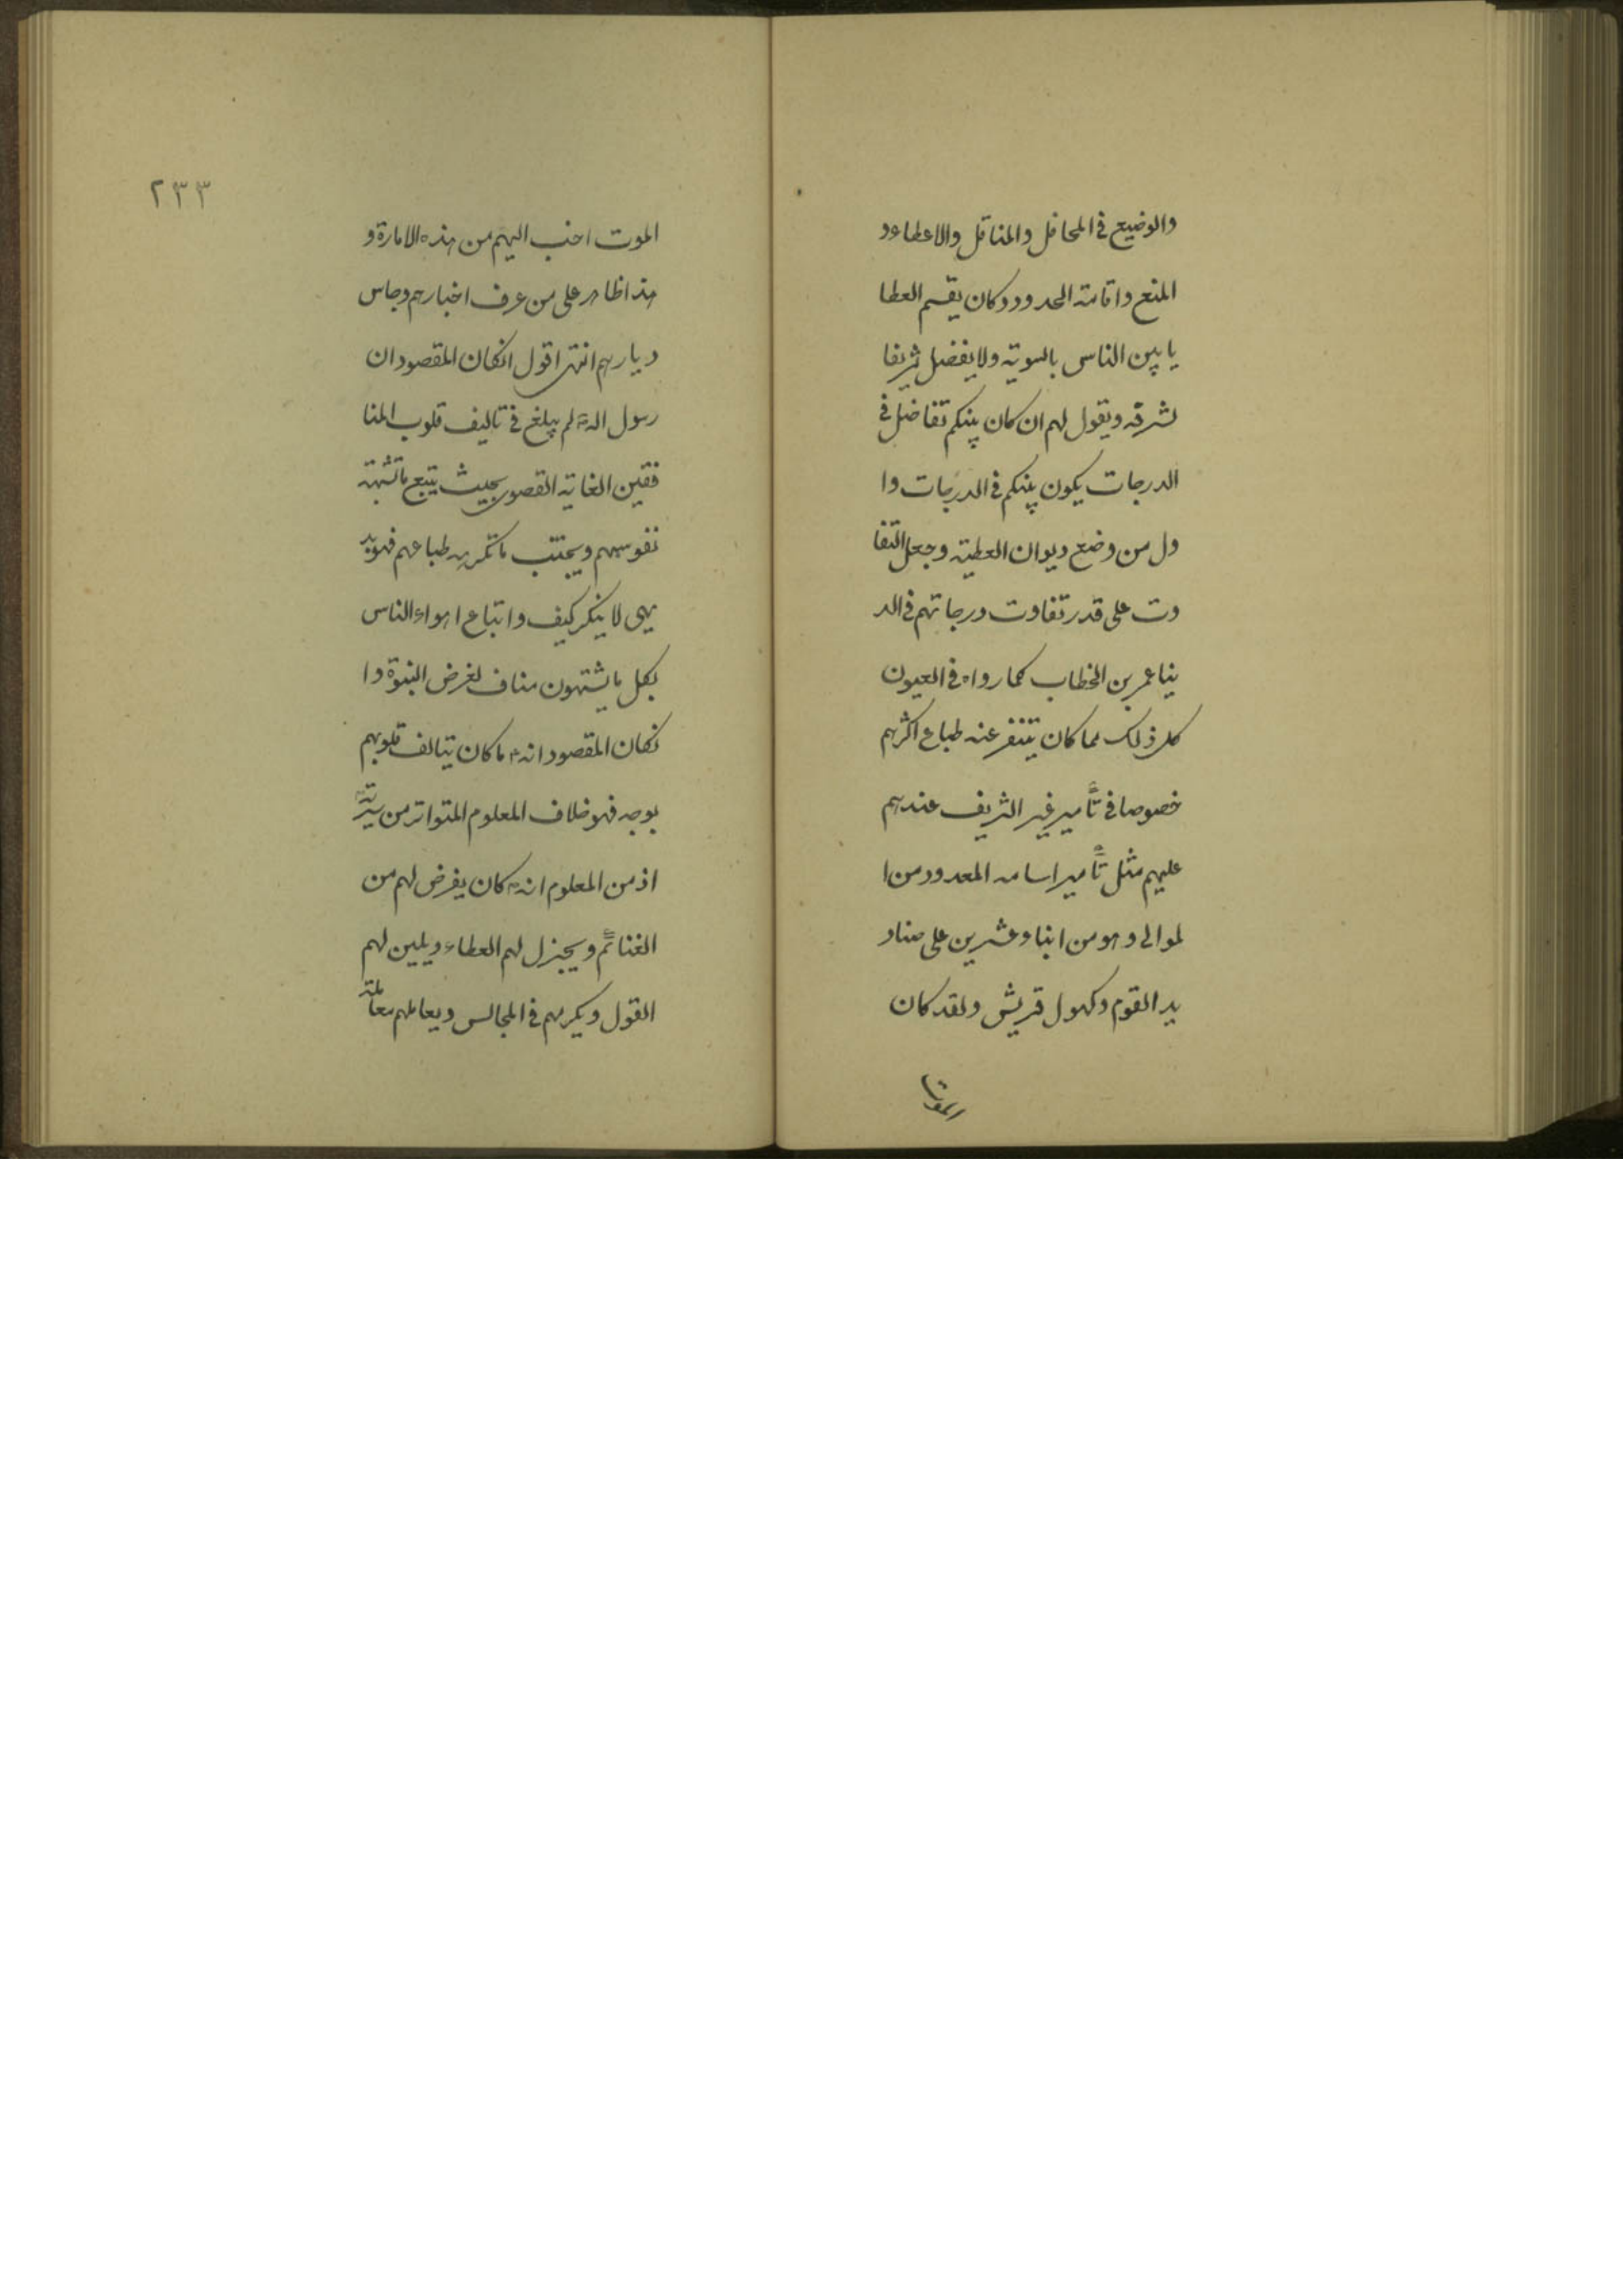 والوضيع في المحافل والمناقل والاعطاء و
المنع واقامته الحدود وكان يقسم العطا
يا بين الناس بالسوية ولا يفضل شريفا
لشرفه ويقول لهم ان كان بينكم تفاضل في
الدرجات يكون بينكم في الدرجات وا
ول من وضع ديوان العطية وجعل التفا
وت على قدر تفاوت درجاتهم في الد
ينا عمر بن الخطاب كما رواه في العيون
كل ذلك مما كان يتنفر عنه طباع اكثرهم
خصوصا في تأمير غير الشريف عندهم
عليهم مثل تأمير اسامه المعدود من ا
لموالى وهو من ابناء عشرين على صناد
يد القوم وكهول قريش ولقد كان
الموت
٢٣٣
الموت احب اليهم من هذه الامارة و
هذا ظاهر على من عرف اخبارهم وجاس
ديارهم انتهى اقول انكان المقصود ان
رسول الله لم يبلغ في تاليف قلوب المنا
فقين الغاية القصوى بحيث يتبع ما تشتهيه
نفوسهم ويجتنب ما تكرهه طباعهم فهو بد
يهى لا ينكر كيف واتباع اهواء الناس
بكل ما يشتهون مناف لغرض النبوة وا
نكان المقصود انه ما كان يتالف قلوبهم
بوجه فهو خلاف المعلوم المتواتر من سيرته
اذ من المعلوم انه كان يفرض لهم من
الغنائم ويجزل لهم العطاء ويلين لهم
القول ويكرمهم في المجالس ويعاملهم معاملة